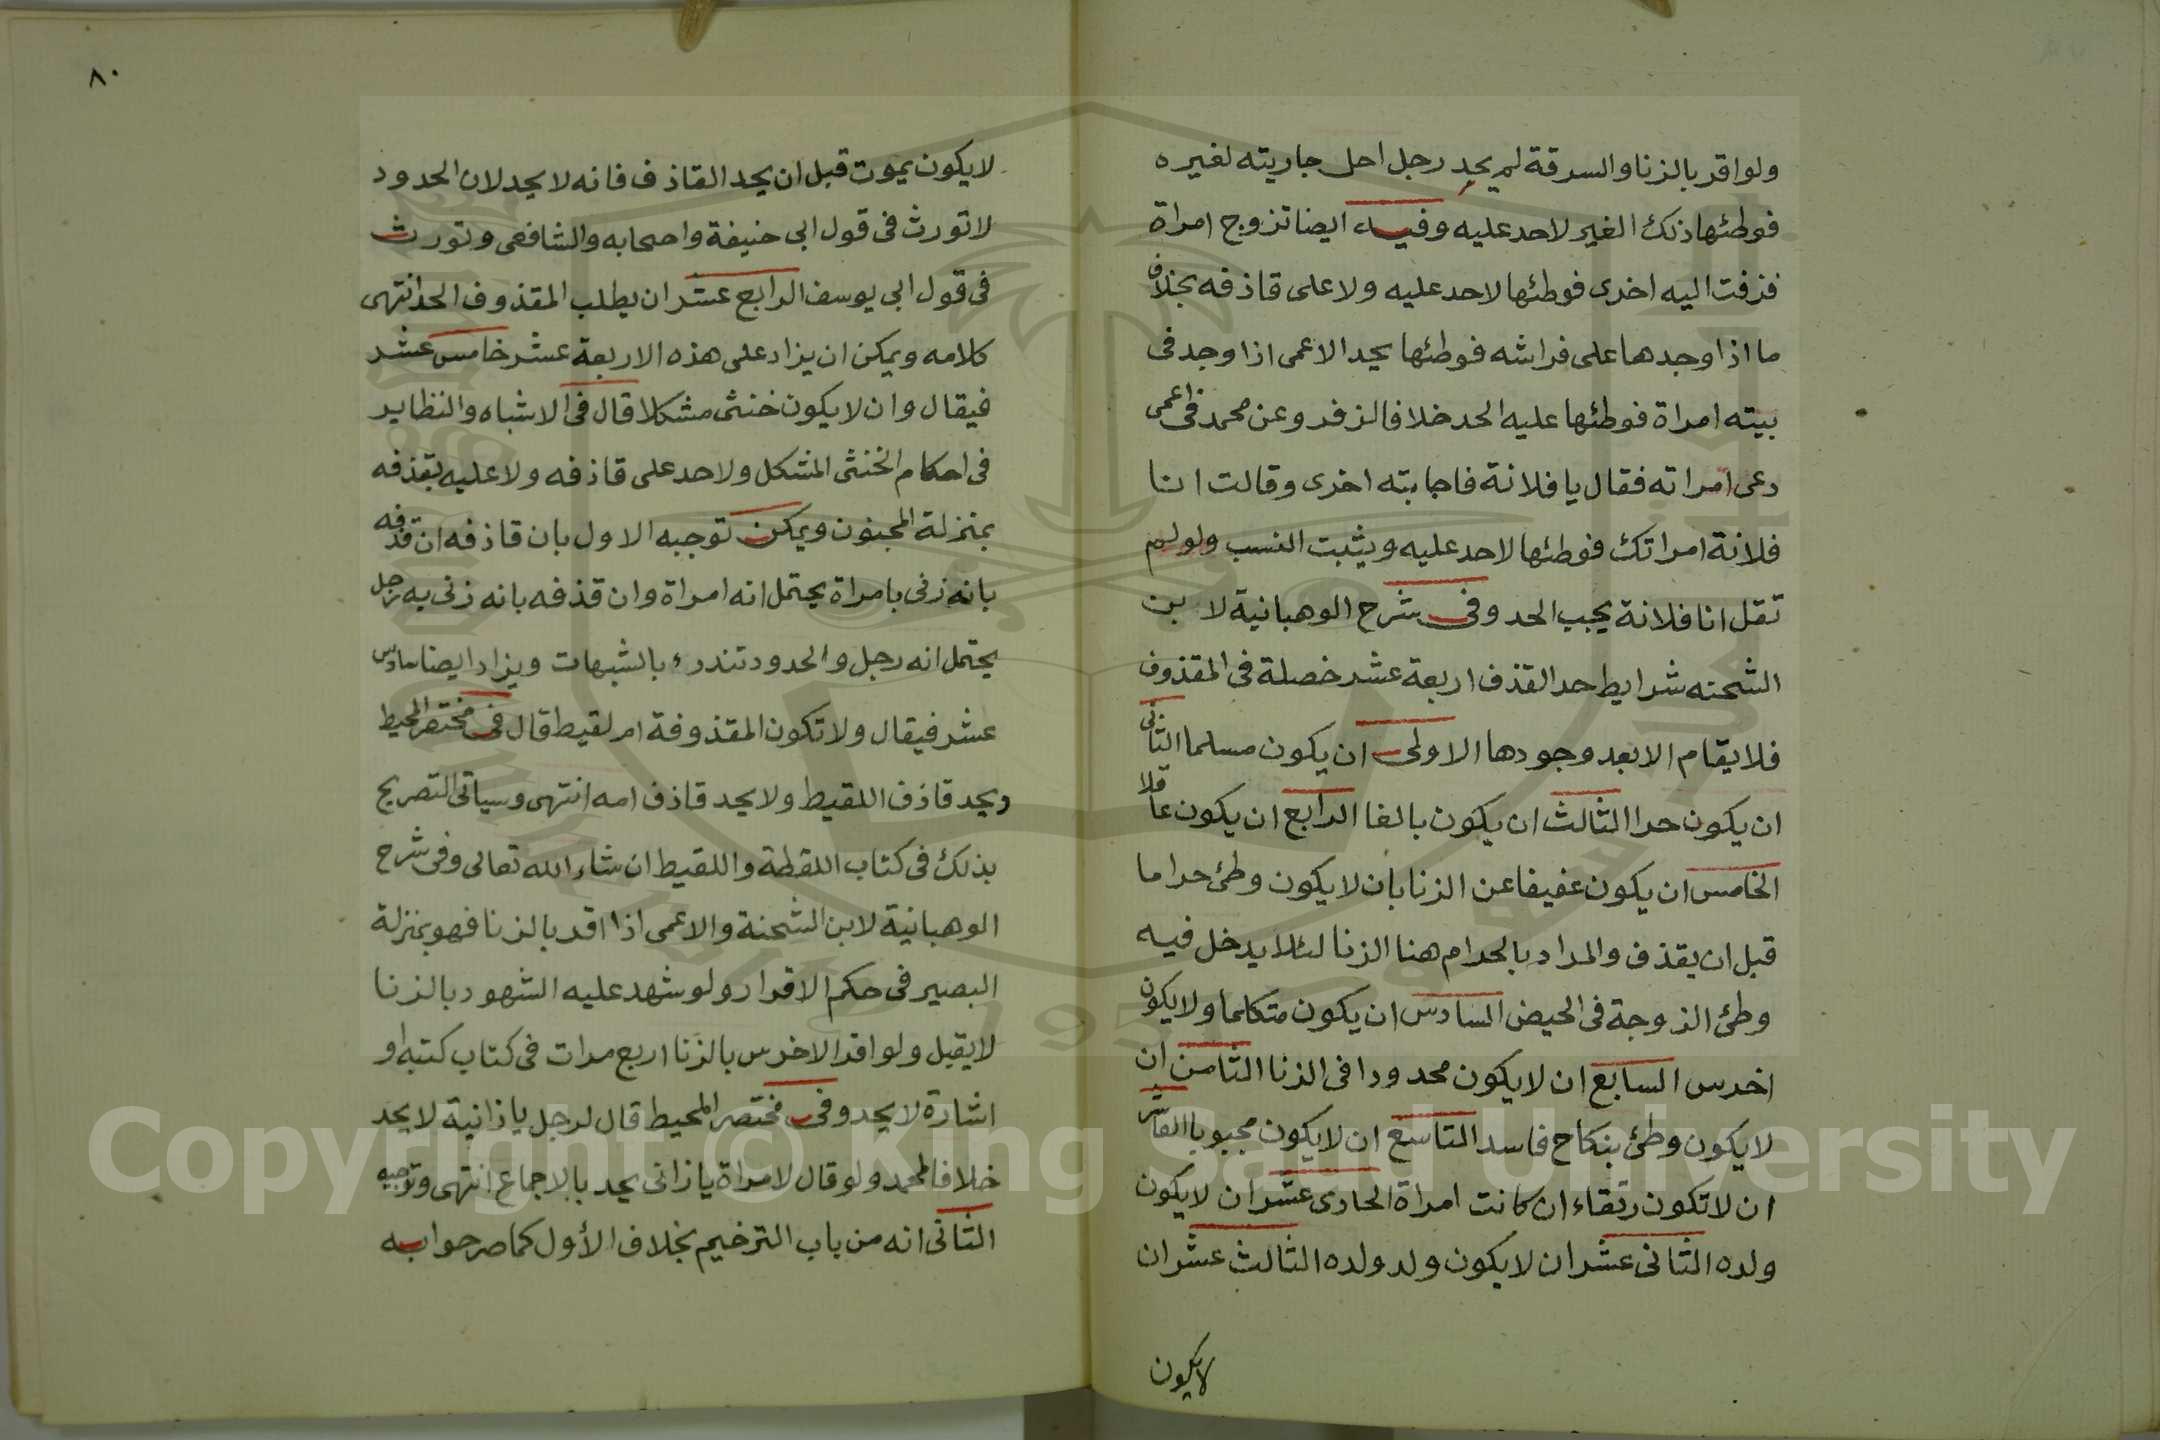 ولو اقر بالزنا والسرقة لم يحد رجل احل جاريته لغيره
فوطئها ذلك الغير لاحد عليه وفيه ايضا تزوج امراة
فزفت اليه اخرى فوطئها لاحد عليه ولا على قاذفه بخلاف
ما اذا وجدها على فراشه فوطئها يحد الاعمى اذا وجد فى
بيته امراة فوطئها عليه الحد خلافا لزفر وعن محمد فى اعمى
دعى امراته فقال يا فلانة فاجابته اخرى وقالت انا
فلانة امراتك فوطئها لاحد عليه ويثبت النسب ولو لم
تقل انا فلانة يجب الحد وفى شرح الوهبانية لابن
الشحنه شرايط حد القذف اربعة عشر خصلة فى المقذوف
فلا يقام الا بعد وجودها الاولى ان يكون مسلما الثانى
ان يكون حرا الثالث ان يكون بالغا الرابع ان يكون عاقلا
الخامس ان يكون عفيفا عن الزنا بان لا يكون وطئ حراما
قبل ان يقذف والمراد بالحرام هنا الزنا لئلا يدخل فيه
وطئ الزوجة فى الحيض السادس ان يكون متكلما ولا يكون
اخرس السابع ان لا يكون محدودا فى الزنا الثامن ان
لا يكون وطئ بنكاح فاسد التاسع ان لا يكون مجبوبا العاشر
ان لا تكون رتقاء ان كانت امراة الحادى عشر ان لا يكون
ولده الثانى عشر ان لا يكون ولد ولده الثالث عشر ان
لا يكون
٨٠
لا يكون يموت قبل ان يحد القاذف فانه لا يحد لان الحدود
لا تورث فى قول ابى حنيفة واصحابه والشافعى وتورث
فى قول ابى يوسف الرابع عشر ان يطلب المقذوف الحد انتهى
كلامه ويمكن ان يزاد على هذه الاربعة عشر خامس عشر
فيقال وان لا يكون خنثى مشكلا قال فى الاشباه والنظاير
فى احكام الخنثى المشكل ولاحد على قاذفه ولا عليه بقذفه
بمنزلة المجنون ويمكن توجبه الاول بان قاذفه ان قذفه
بانه زنى بامراة يحتمل انه امراة وان قذفه بانه زنى به رجل
يحتمل انه رجل والحدود تندرء بالشبهات ويزاد ايضا سادس
عشر فيقال ولا تكون المقذوفة ام لقيط قال فى مختصر المحيط
ويحد قاذف اللقيط ولا يحد قاذف امه انتهى وسياتى التصريح
بذلك فى كتاب اللقطة واللقيط ان شاء الله تعالى وفى شرح
الوهبانية لابن الشحنة والاعمى اذا اقر بالزنا فهو بمنزلة
البصير فى حكم الاقرار ولو شهد عليه الشهود بالزنا
لا يقبل ولو اقر الاخرس بالزنا اربع مرات فى كتاب كتبه او
اشارة لا يحد وفى مختصر المحيط قال لرجل يا زانية لا يحد
خلافا لمحمد ولو قال لامراة يا زانى يحد بالاجماع انتهى وتوجيه
الثانى انه من باب الترخيم بخلاف الأول كما صرحوا به
Copyright © King Saud University
1957